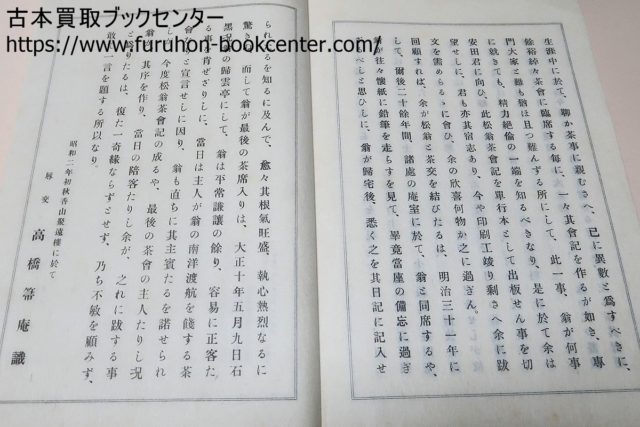 古本買取ブックセンター
https://www.furuhon-bookcenter.com/
生涯中に於て、聊か茶事に親むさへ、已に異數と爲すべきに、
餘裕綽々茶會に臨席する毎に、一々其會記を作るが如き、專
門大家と雖も猶ほ且つ難んずる所にして、此一事、翁が何事
に就きても、精力絶倫の一端を知るべきなり、是に於て余は
安田君に向ひ、此松翁茶會記を單行本として出板せん事を切
望せしに、君も亦其宿志あり、今や印刷工竣り剩さへ余に跋
文を需めらるゝに會ひ、余の欣喜何物か之に過ぎん。
回顧すれば、余が松翁と茶交を結びたるは、明治三十一年に
して、爾後二十餘年間、諸處の庵室に於て、翁と同席するや、
翁が往々懷紙に鉛筆を走らすを見て、畢竟當座の備忘に過ぎ
ざるべしと思ひしに、翁が歸宅後、悉く之を其日記に記入せ
られたるを知るに及んで、愈々其根氣旺盛、執心熱烈なるに
驚き、而して翁が最後の茶席入りは、大正十年五月九日石
黑況翁の歸雲亭にして、翁は平常謙讓の餘り、容易に正客た
る事を肯ぜざりしに、當日は主人が翁の南洋渡航を餞する茶
會なりと宣言せしに因り、翁も直ちに其主賓たるを諾せられ
しが、今度松翁茶會記の成るや、最後の茶會の主人たりし況
翁が其序を作り、當日の陪客たりし余が、之れに跋する事
と爲りたるは、復た一奇縁ならずとせず、乃ち不敏を顧みず、
敢て一言を題する所以なり。
昭和二年初秋香山聚遠樓に於て
辱交 高橋箒庵識